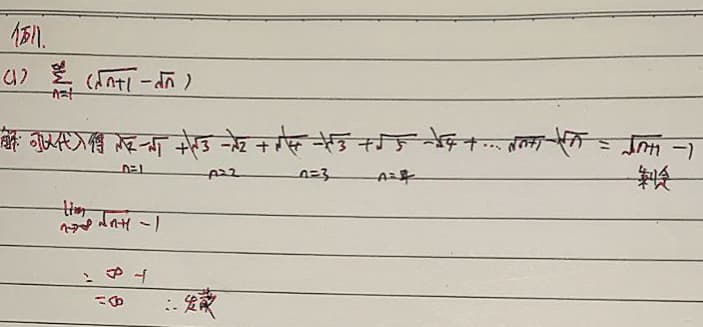 例1.
(1) ∞ Σ n=1 (√n+1 - √n)
解: 可以代入得 √2 - √1 + √3 - √2 + √4 - √3 + √5 - √4 + ... √n+1 - √n = √n+1 - 1
n=1 n=2 n=3 n=4 剩余
lim n→∞ √n+1 - 1
= ∞ - 1
= ∞ ∴ 发散